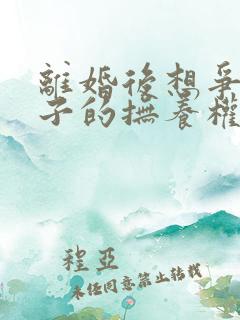 離婚後想爭
子的撫養權
程亞
未經同意禁止轉載